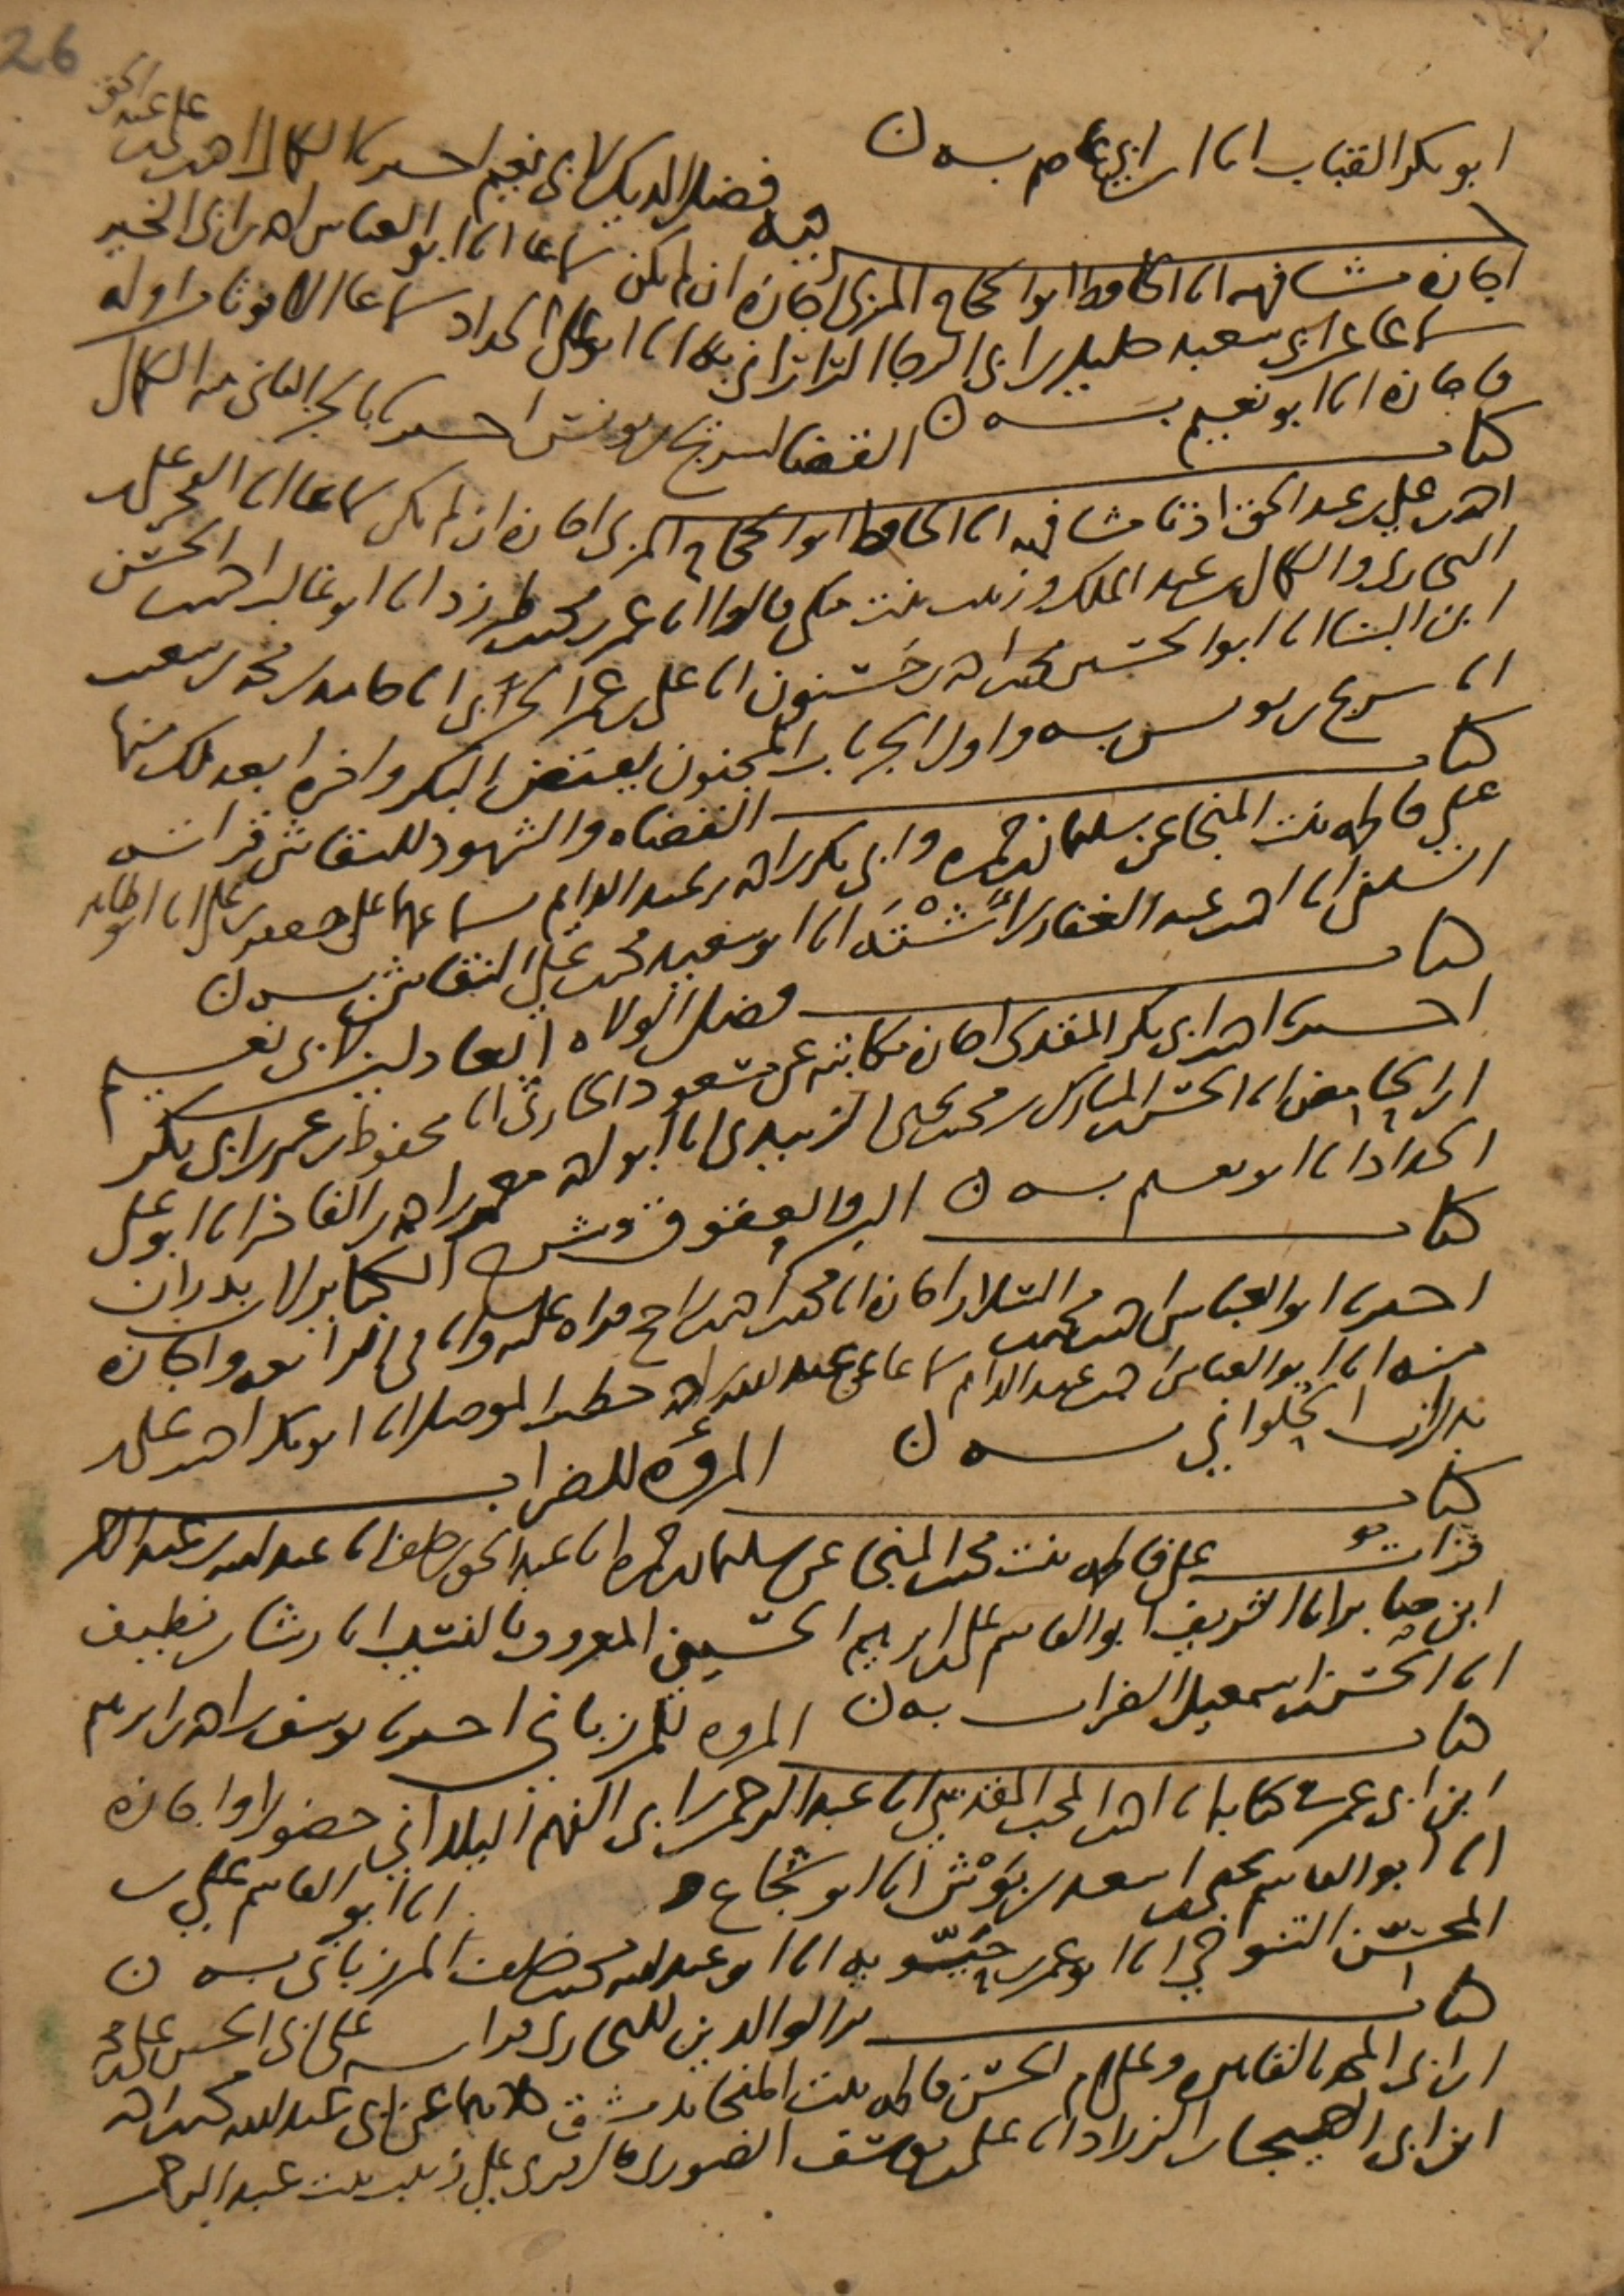 26
ابو بكر القباب انا ابن ابي عاصم به ن
فيه فضل الديك لابي نعيم اخبرنا الكمال احمد بن علي بن عبد الحق
اجازة مشافهة انا الحافظ ابو الحجاج المزي اجازة ان لم يكن سماعا انا ابو العباس احمد بن ابي الخير
سماعا عن ابي سعيد خليل بن ابي الرجا الراراني انا ابو علي الحداد سماعا الا فوتا من اوله
فاجازة انا ابو نعيم به ن
كتاب القضا لسريج بن يونس اخبرنا بالجز الثاني منه الكمال
احمد بن علي بن عبد الحق اذنا مشافهة انا الحافظ ابو الحجاج المزي اجازة ان لم يكن سماعا انا الفخر علي بن
البخاري والكمال بن عبد الملك وزينب بنت مكي قالوا انا عمر بن محمد بن طبرزد انا ابو غالب احمد بن الحسن
ابن البنا انا ابو الحسين محمد بن احمد بن حسنون انا علي بن عمر الحربي انا حامد بن محمد بن شعيب
انا سريج بن يونس به واول الجز باب المجنون يفتض البكر واخره
كتاب القضاه والشهود للنقاش قراته
علي فاطمه بنت المنجا عن سليمان بن حمزه وابي بكر بن احمد بن عبد الدايم سماعهما علي جعفر بن علي انا ابو طاهر
السلفي انا احمد بن عبد الغفار بن اشته انا ابو سعيد محمد بن علي النقاش به ن
كتاب فضل الولاه العادلين لابي نعيم
اخبرنا احمد بن ابي بكر المقدسي اجازة مكاتبة عن مسعود الحارثي انا محفوظ بن عمر بن ابي بكر
ابن الحامض انا الحسن بن المبارك بن محمد بن يحيى الزبيدي انا ابو احمد معمر بن الفاخر انا ابو علي
الحداد انا ابو نعيم به ن
كتاب البر والعقوق وشرب الكباير لابن بدران
اخبرنا ابو العباس احمد بن محمد السلار اجازة انا محمد بن احمد
منه انا ابو العباس احمد بن عبد الدايم سماعا عن عبد الله بن احمد خطيب الموصل انا ابو بكر احمد بن علي بن
بدران الحلواني به ن
كتاب المروءة للضراب
قرات علي فاطمه بنت محمد بن المنجا عن سليمان بن حمزه انا عبد الحق بن خلف انا عبد الله بن عبد الرحمن
ابن صابر انا الشريف ابو القاسم علي بن ابراهيم الحسيني المعروف بالنسيب انا رشا بن نظيف
انا الحسن بن اسمعيل الضراب به ن
كتاب المروه للمرزباني اخبرنا يوسف بن احمد بن ابراهيم
ابن ابي عمر كتابة انا احمد بن المحب المقدسي انا عبد الرحمن بن ابي الفهم البلداني حضورا واجازة
انا ابو القاسم يحيى بن اسعد بن بوش انا ابو شجاع
انا ابو القاسم علي بن
المحسن التنوخي انا ابو عمر بن حيويه انا ابو عبد الله محمد بن خلف المرزباني به ن
كتاب بر الوالدين للبخاري قراته علي ابي الحسن علي بن محمد
ابن ابي المجد بالقاهره وعلي ام الحسن فاطمه بنت المنجا بدمشق كلاهما عن ابي عبد الله محمد بن احمد
ابن ابي الهيجا بن الزراد انا علي بن يوسف الصوري قال قري علي زينب بنت عبد الرحمن